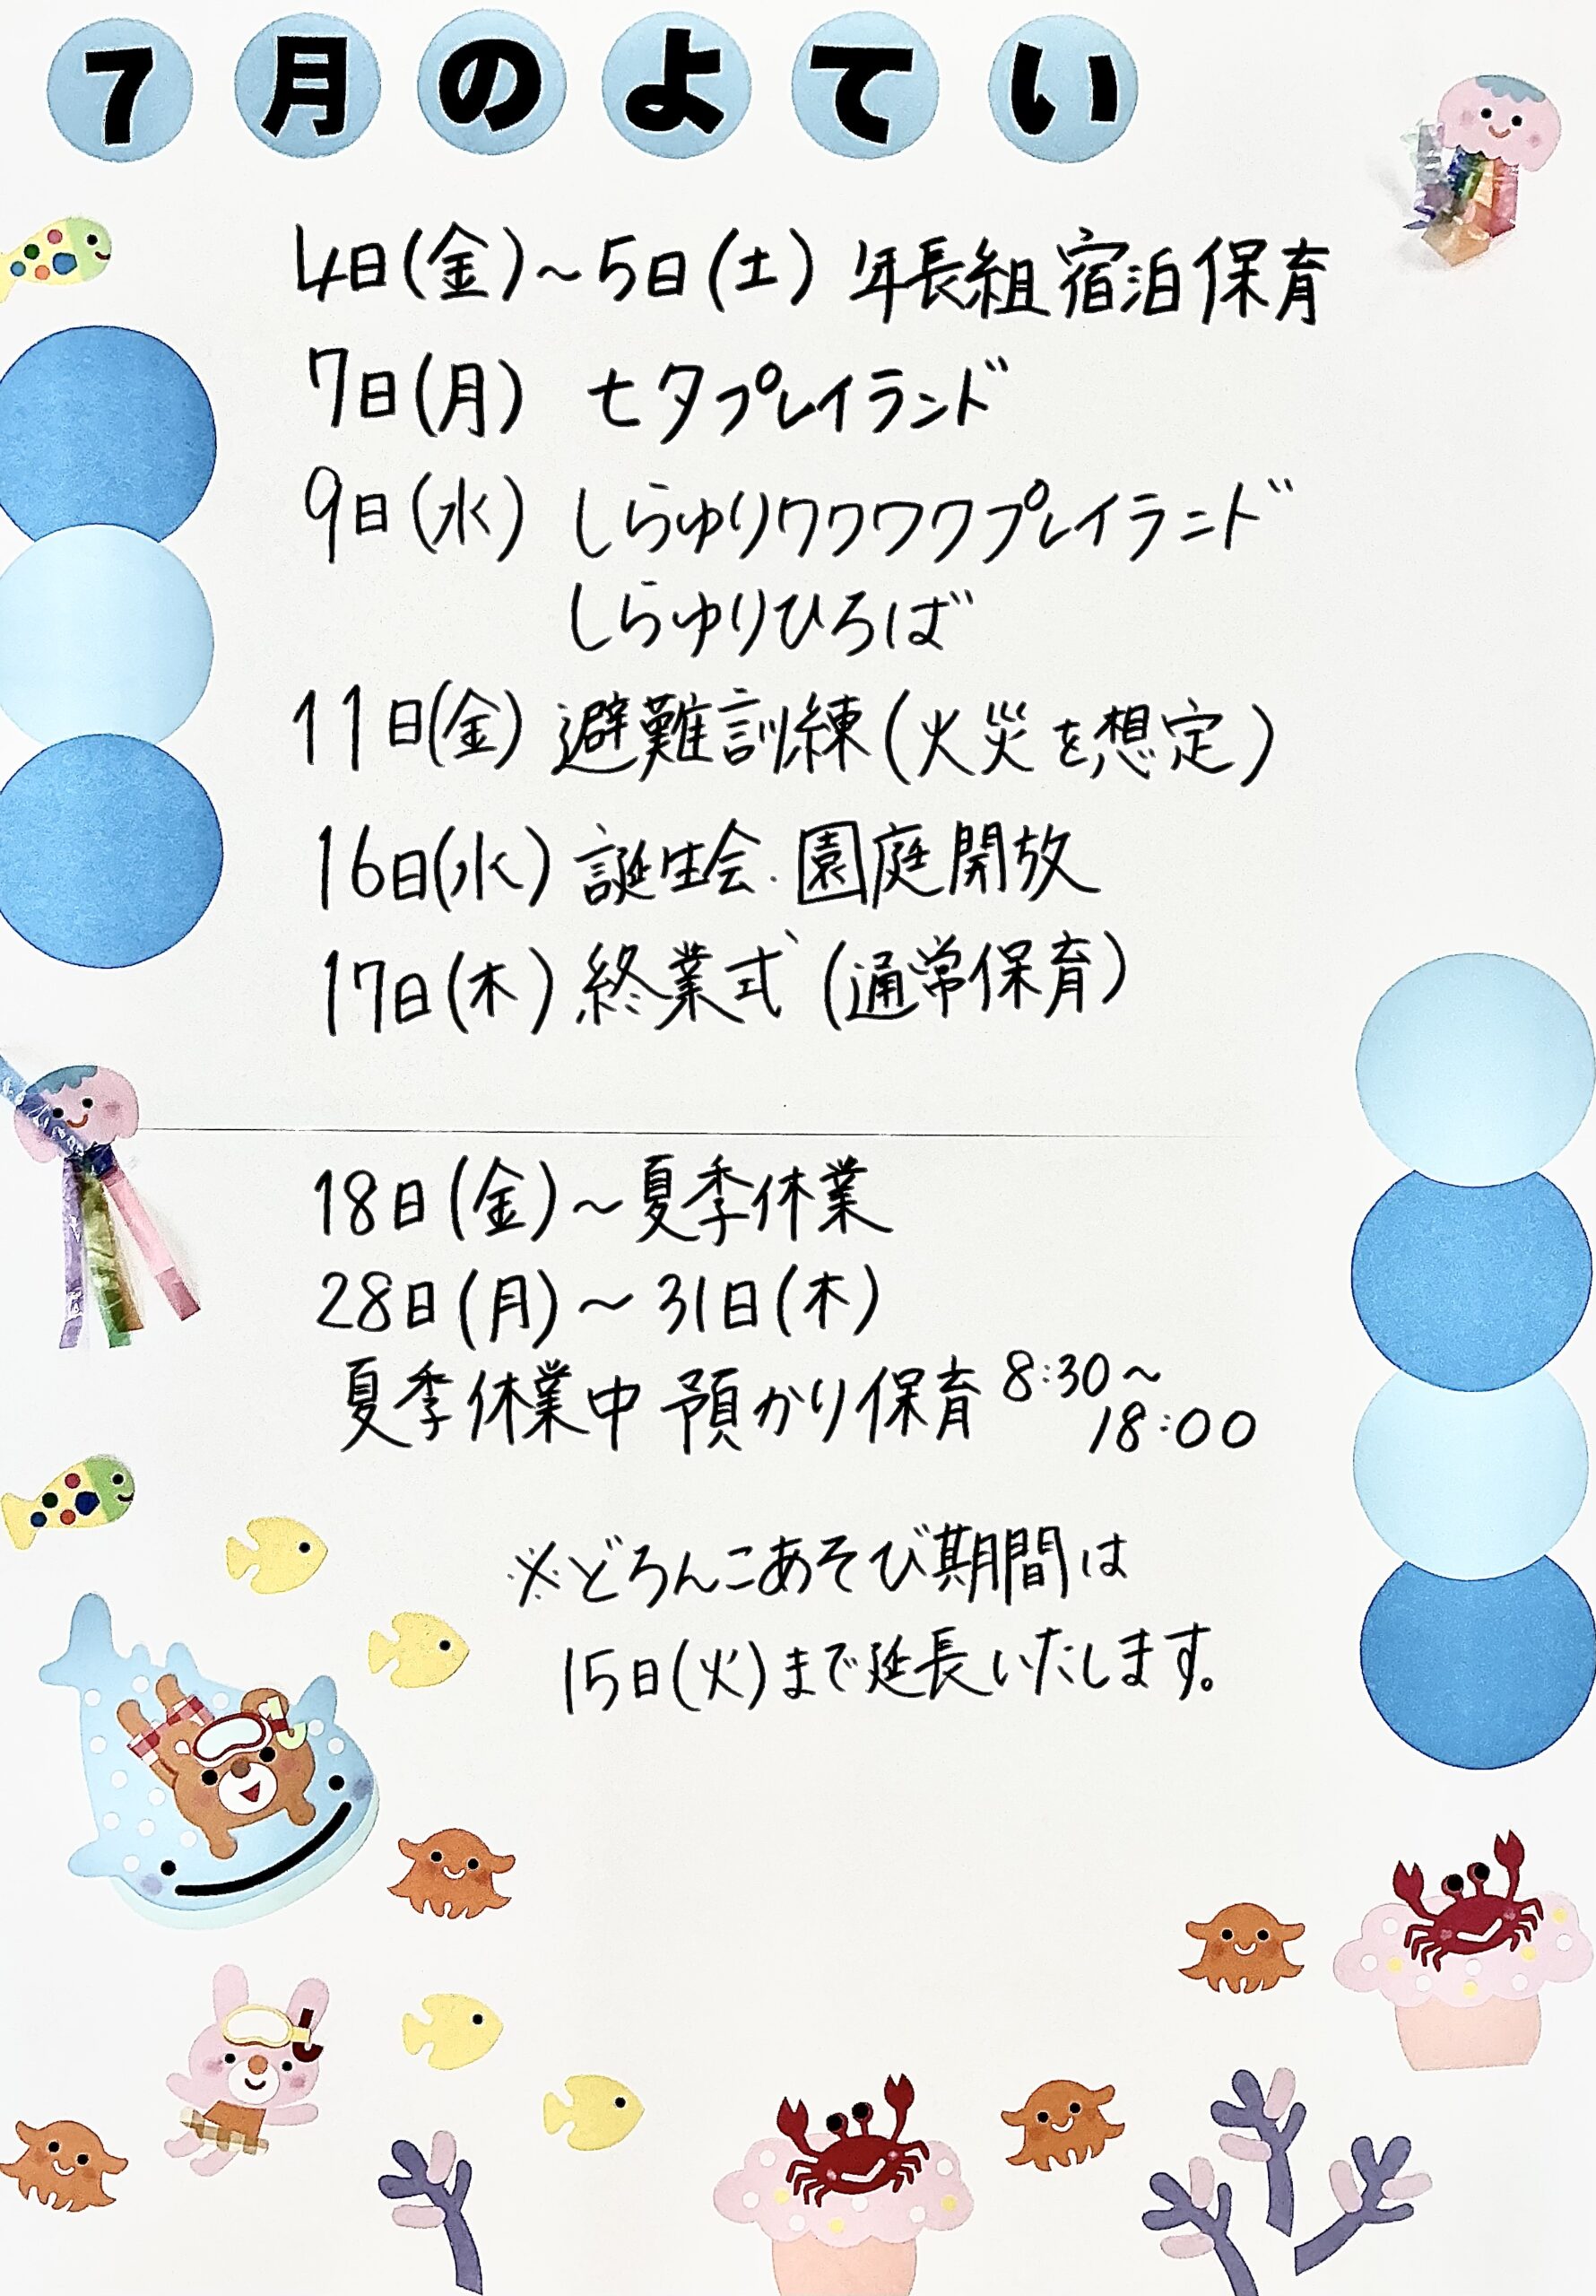 7月のよてい
4日(金)～5日(土) 年長組宿泊保育
7日(月) 七夕プレイランド
9日(水) しらゆりワクワクプレイランド
しらゆりひろば
11日(金) 避難訓練(火災を想定)
16日(水) 誕生会.園庭開放
17日(木) 終業式 (通常保育)
18日(金)～夏季休業
28日(月)～31日(木)
夏季休業中 預かり保育 8:30～
18:00
※どろんこあそび期間は
15日(火)まで延長いたします。